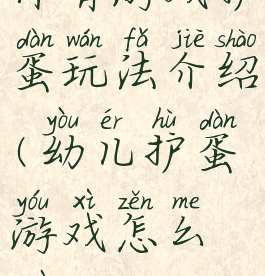 dàn wán fǎ jiè shào
蛋玩法介绍
yòu ér hù dàn
(幼儿护蛋
yóu xì zěn me
游戏怎么